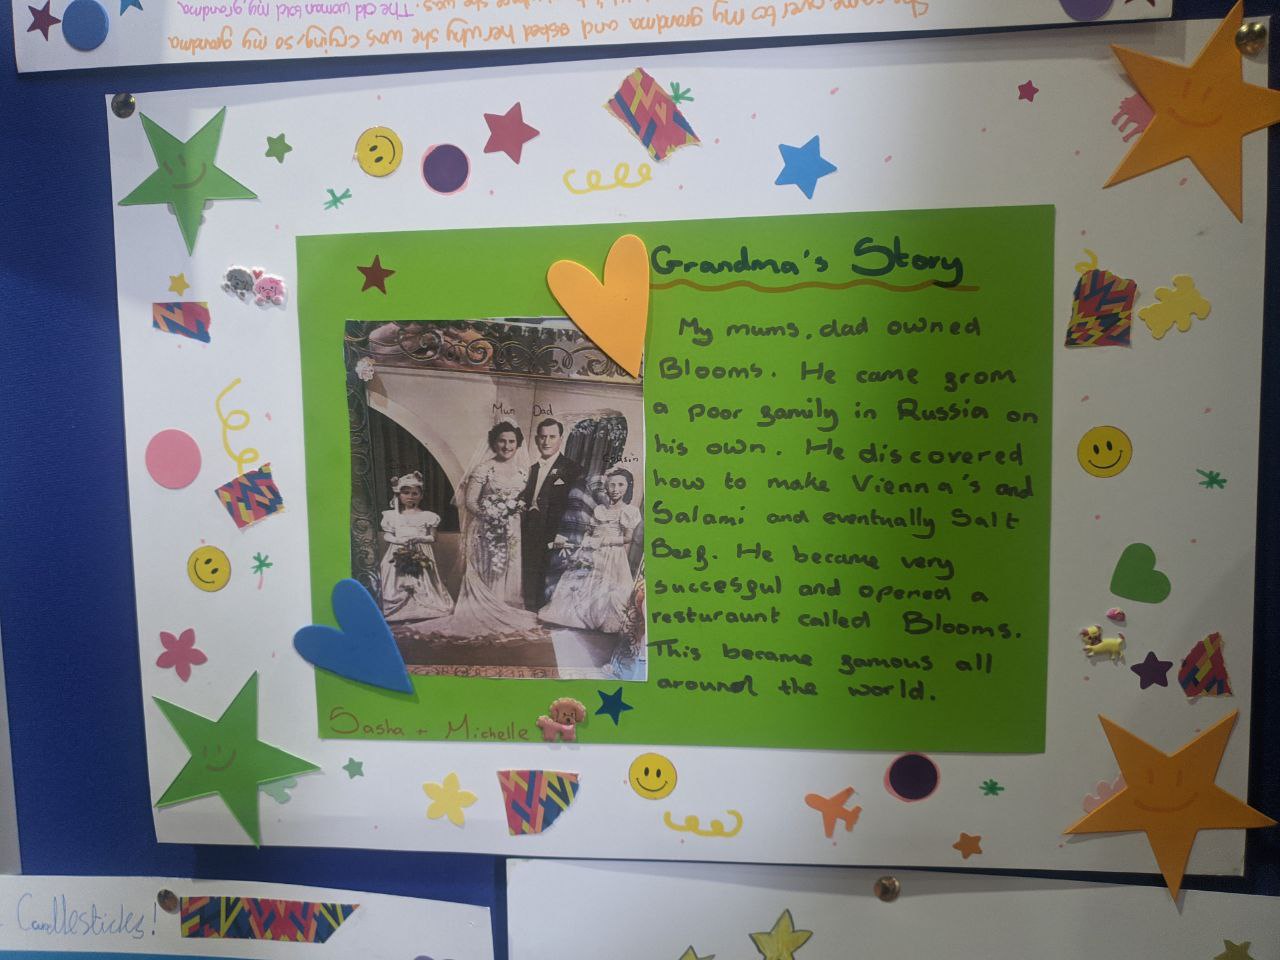 She came over to my grandma and asked her why she was crying, so my grandma
The old woman told my grandma,
Grandma's Story
My mums, dad owned
Blooms. He came from
a poor family in Russia on
his own. He discovered
how to make Vienna's and
Salami and eventually Salt
Beef. He became very
succesful and opened a
resturaunt called Blooms.
This became famous all
around the world.
Mum Dad
Cousin
Sasha + Michelle
Candlesticks!